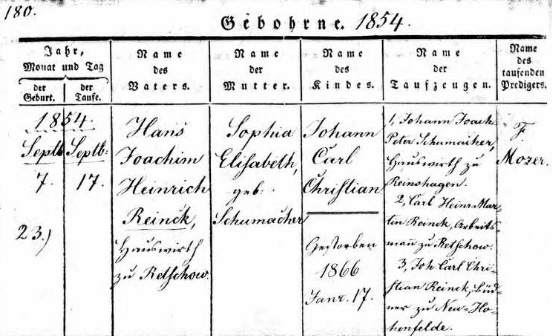 180.
Gebohrne. 1854.
Jahr,
Monat und Tag
der
Geburt.
der
Taufe.
Name
des
Vaters.
Name
der
Mutter.
Name
des
Kindes.
Name
der
Taufzeugen.
Name
des
taufenden
Predigers.
1854.
Septb.
7.
Septb.
17.
23.)
Hans
Joachim
Heinrich
Reinck,
Hauswirth
zu Retschow.
Sophia
Elisabeth,
geb.
Schumacher
Johann
Carl
Christian
Gestorben
1866
Janr. 17.
1, Johann Joach.
Peter Schumacher,
Hauswirth zu
Reinshagen.
2, Carl Heinr. Mar-
tin Reinck, Arbeits-
mann zu Retschow.
3, Joh. Carl Chri-
stian Reinck, Büd-
ner zu Neu-Ho-
henfelde.
F.
Mozer.